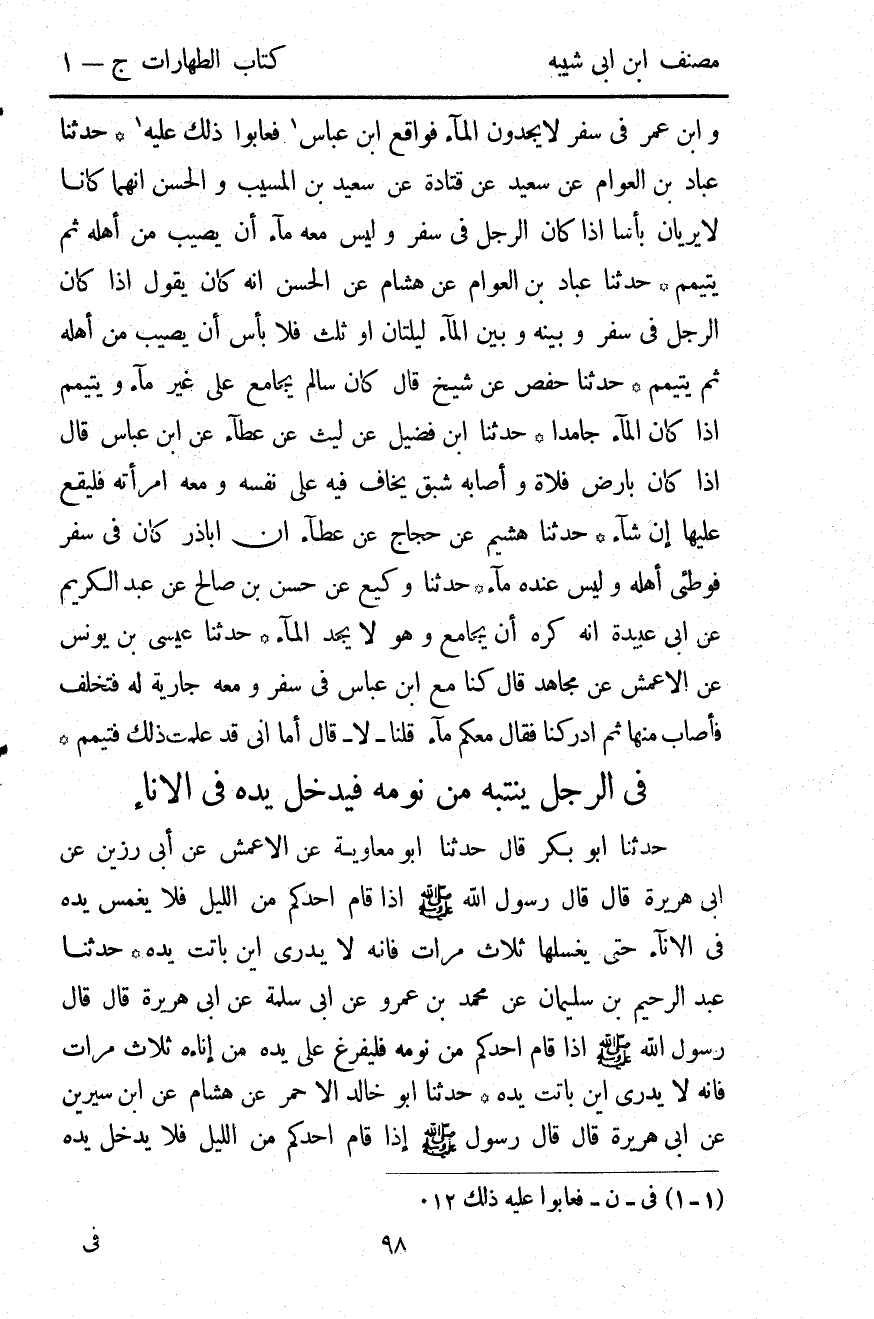 مصنف ابن ابى شيبه كتاب الطهارات ج — ١
و ابن عمر فى سفر لايجدون المآء فواقع ابن عباس١ فعابوا ذلك عليه١ * حدثنا
عباد بن العوام عن سعيد عن قتادة عن سعيد بن المسيب و الحسن انهما كانــا
لايريان بأسا اذا كان الرجل فى سفر و ليس معه مآء أن يصيب من أهله ثم
يتيمم * حدثنا عباد بن العوام عن هشام عن الحسن انه كان يقول اذا كان
الرجل فى سفر و بينه و بين المآء ليلتان او ثلث فلا بأس أن يصيب من أهله
ثم يتيمم * حدثنا حفص عن شيخ قال كان سالم يجامع على غير مآء و يتيمم
اذا كان المآء جامدا * حدثنا ابن فضيل عن ليث عن عطآء عن ابن عباس قال
اذا كان بارض فلاة و أصابه شبق يخاف فيه على نفسه و معه امرأته فليقع
عليها إن شآء * حدثنا هشيم عن حجاج عن عطآء ان اباذر كان فى سفر
فوطئى أهله و ليس عنده مآء * حدثنا وكيع عن حسن بن صالح عن عبد الكريم
عن ابى عبيدة انه كره أن يجامع و هو لا يجد المآء * حدثنا عيسى بن يونس
عن الاعمش عن مجاهد قال كنا مع ابن عباس فى سفر و معه جارية له فتخلف
فأصاب منها ثم ادركنا فقال معكم مآء قلنا ـ لا ـ قال أما انى قد علمت ذلك فتيمم *
فى الرجل ينتبه من نومه فيدخل يده فى الاناء
حدثنا ابو بـكر قال حدثنا ابو معاويـة عن الاعمش عن أبى رزين عن
ابى هريرة قال قال رسول الله ﷺ اذا قام احدكم من الليل فلا يغمس يده
فى الانآء حتى يغسلها ثلاث مرات فانه لا يدرى اين باتت يده * حدثنــا
عبد الرحيم بن سليمان عن محمد بن عمرو عن ابى سلمة عن ابى هريرة قال قال
رسول الله ﷺ اذا قام احدكم من نومه فليفرغ على يده من إناءه ثلاث مرات
فانه لا يدرى اين باتت يده * حدثنا ابو خالد الاحمر عن هشام عن ابن سيرين
عن ابى هريرة قال قال رسول ﷺ إذا قام احدكم من الليل فلا يدخل يده
(١ـ١) فى ـ ن ـ فعابوا عليه ذلك ١٢٠
٩٨ فى